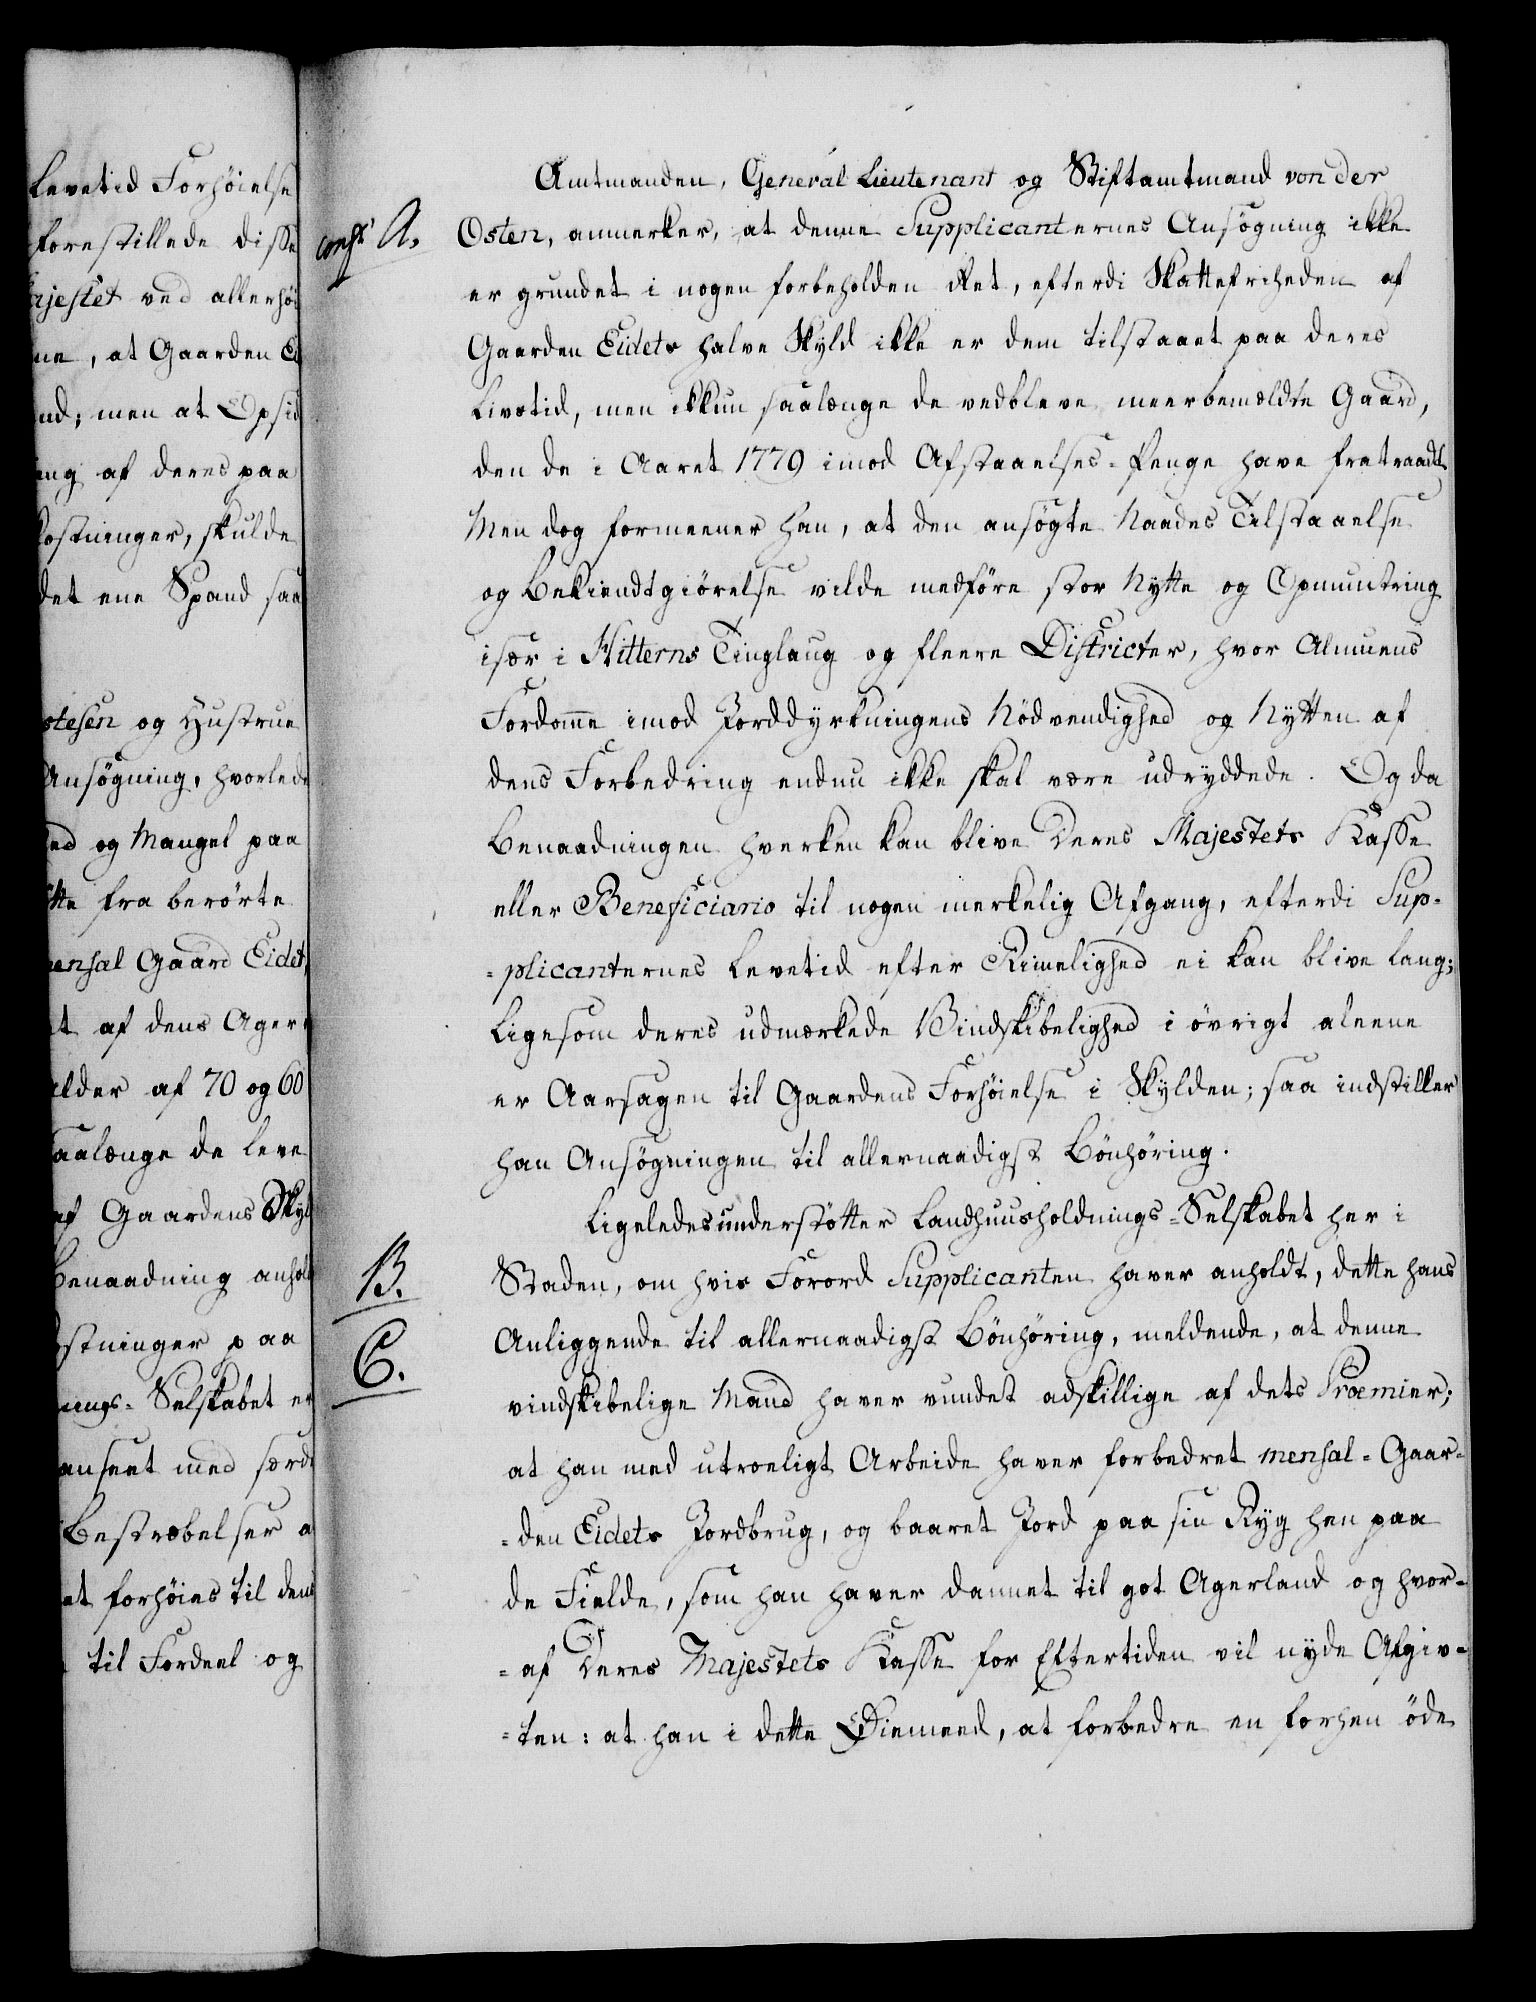 Levetid Forhöielse
forestillede disse
ajestet ved allerhöi
ne, at Gaarden Ei
nd; men at Opsid
ing af deres paa
kostninger, skulde
det ene Spand saa
otesen og Hustrue
Ansögning, hvorlede
ed og Mangel paa
tte fra berörte
ensal Gaard Eidet,
t af dens Ager
alder af 70 og 60
saalænge de leve
af Gaardens Skyl
Benaadning anhol
ostninger paa
nings-Selskabet er
anseet med særd
Bestræbelser a
et forhöies til dens
til Fordeel og
Amtmanden, General Lieutenant og Stiftamtmand von der
A.
Osten, anmerker, at denne Supplicanternes Ansögning ikke
er grundet i nogen forbeholden Ret, efterdi Skattefriheden af
Gaarden Eidets halve Skyld ikke er dem tilstaaet paa deres
Livstid, men ikkun saalænge de vedbleve meerbemeldte Gaard,
den de i Aaret 1779 imod Afstaaelses-Penge have fratraadt
Men dog formeener han, at den ansögte Naades Tilstaaelse
og Bekiendtgiörelse vilde medföre stor Nytte og Opmuntring
især i Hitterns Tinglaug og fleere Districter, hvor Almuens
Fordomme imod Jorddyrkningens Nödvendighed og Nytten af
dens Forbedring endnu ikke skal være udryddede. Og da
Benaadningen hverken kan blive Deres Majestets Kasse
eller Beneficiario til nogen merkelig Afgang, efterdi Sup-
-plicanternes Levetid efter Rimelighed ei kan blive lang;
Ligesom deres udmærkede Vindskibelighed i övrigt aleene
er Aarsagen til Gaardens Forhöielse i Skylden; saa indstiller
han Ansögningen til allernaadigst Bönhöring.
Ligeledes understötter Landhuusholdnings-Selskabet her i
B.
Staden, om hvis Forord Supplicanten haver anholdt, dette hans
C.
Anliggende til allernaadigst Bönhöring, meldende, at denne
vindskibelige Mand haver vundet adskillige af dets Præmier;
at han med utroeligt Arbeide haver forbedret mensal-Gaar-
-den Eidets Jordbrug, og baaret Jord paa sin Ryg hen paa
de Fielde, som han haver dannet til got Agerland og hvor-
-af Deres Majestets Kasse for Eftertiden vil nyde Afgiv-
-ten: at han i dette Øiemeed, at forbedre en forhen öde